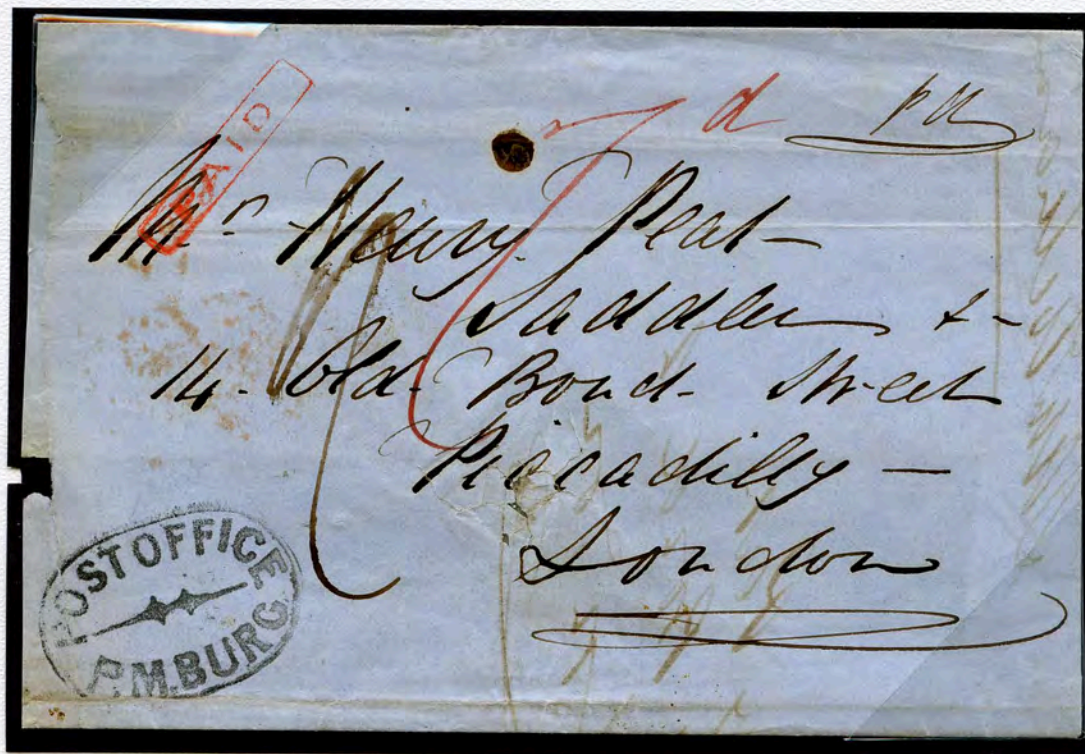 PAID
d pd
Mr. Henry Peat
Saddler &-
14. Old. Bond. Street
Piccadilly —
London
POST OFFICE
P.M.BURG